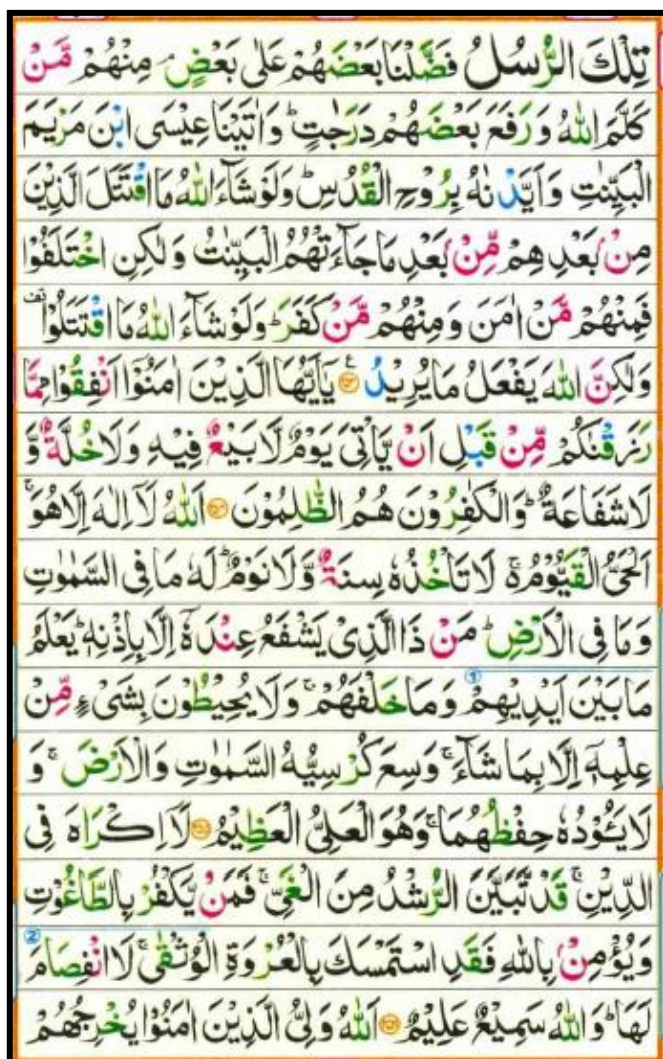 تِلْكَ الرُّسُلُ فَضَّلْنَا بَعْضَهُمْ عَلٰى بَعْضٍ ۘ مِنْهُمْ مَّنْ
كَلَّمَ اللّٰهُ وَرَفَعَ بَعْضَهُمْ دَرَجٰتٍ ؕ وَاٰتَيْنَا عِيْسَى ابْنَ مَرْيَمَ
الْبَيِّنٰتِ وَاَيَّدْنٰهُ بِرُوْحِ الْقُدُسِ ؕ وَلَوْ شَآءَ اللّٰهُ مَا اقْتَتَلَ الَّذِيْنَ
مِنْۢ بَعْدِهِمْ مِّنْۢ بَعْدِ مَا جَآءَتْهُمُ الْبَيِّنٰتُ وَلٰكِنِ اخْتَلَفُوْا
فَمِنْهُمْ مَّنْ اٰمَنَ وَمِنْهُمْ مَّنْ كَفَرَ ؕ وَلَوْ شَآءَ اللّٰهُ مَا اقْتَتَلُوْا ۟قف
وَلٰكِنَّ اللّٰهَ يَفْعَلُ مَا يُرِيْدُ ﴿۲۵۳﴾ يٰۤاَيُّهَا الَّذِيْنَ اٰمَنُوْۤا اَنْفِقُوْا مِمَّا
رَزَقْنٰكُمْ مِّنْ قَبْلِ اَنْ يَّاْتِيَ يَوْمٌ لَّا بَيْعٌ فِيْهِ وَلَا خُلَّةٌ وَّ
لَا شَفَاعَةٌ ؕ وَالْكٰفِرُوْنَ هُمُ الظّٰلِمُوْنَ ﴿۲۵۴﴾ اَللّٰهُ لَاۤ اِلٰهَ اِلَّا هُوَ ۚ
اَلْحَيُّ الْقَيُّوْمُ ۚ لَا تَاْخُذُهٗ سِنَةٌ وَّلَا نَوْمٌ ؕ لَهٗ مَا فِي السَّمٰوٰتِ
وَمَا فِي الْاَرْضِ ؕ مَنْ ذَا الَّذِيْ يَشْفَعُ عِنْدَهٗۤ اِلَّا بِاِذْنِهٖ ؕ يَعْلَمُ
مَا بَيْنَ اَيْدِيْهِمْ وَمَا خَلْفَهُمْ ۚ وَلَا يُحِيْطُوْنَ بِشَيْءٍ مِّنْ
عِلْمِهٖۤ اِلَّا بِمَا شَآءَ ۚ وَسِعَ كُرْسِيُّهُ السَّمٰوٰتِ وَالْاَرْضَ ۚ وَ
لَا يَـُٔوْدُهٗ حِفْظُهُمَا ۚ وَهُوَ الْعَلِيُّ الْعَظِيْمُ ﴿۲۵۵﴾ لَاۤ اِكْرَاهَ فِي
الدِّيْنِ ۙ قَدْ تَّبَيَّنَ الرُّشْدُ مِنَ الْغَيِّ ۚ فَمَنْ يَّكْفُرْ بِالطَّاغُوْتِ
وَيُؤْمِنْۢ بِاللّٰهِ فَقَدِ اسْتَمْسَكَ بِالْعُرْوَةِ الْوُثْقٰى ۗ لَا انْفِصَامَ
لَهَا ؕ وَاللّٰهُ سَمِيْعٌ عَلِيْمٌ ﴿۲۵۶﴾ اَللّٰهُ وَلِيُّ الَّذِيْنَ اٰمَنُوْا يُخْرِجُهُمْ